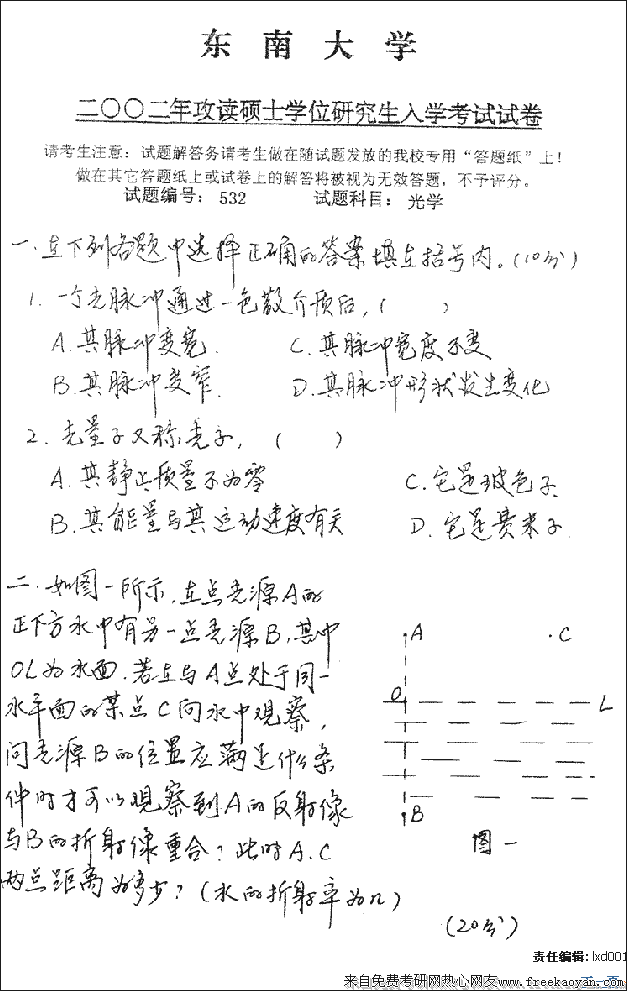 东南大学
二〇〇二年攻读硕士学位研究生入学考试试卷
请考生注意：试题解答务请考生做在随试题发放的我校专用“答题纸”上！
做在其它答题纸上或试卷上的解答将被视为无效答题，不予评分。
试题编号：532 试题科目：光学
一．在下列各题中选择正确的答案填在括号内。(10分)
1. 一个光脉冲通过一色散介质后，( )
A. 其脉冲变宽. C. 其脉冲宽度不变
B. 其脉冲变窄. D. 其脉冲形状发生变化
2. 光量子又称光子，( )
A. 其静止质量不为零 C. 它是玻色子
B. 其能量与其运动速度有关 D. 它是费米子
二．如图一所示，在点光源A的
正下方水中有另一点光源B，其中
OL为水面．若在与A点处于同一
水平面的某点C向水中观察，
问光源B的位置应满足什么条
件时才可以观察到A的反射像
与B的折射像重合？此时A、C
两点距离为多少？(水的折射率为n)
(20分)
A C
O L
B
图一
责任编辑: lxd001
来自免费考研网热心网友www.freekaoyan.com